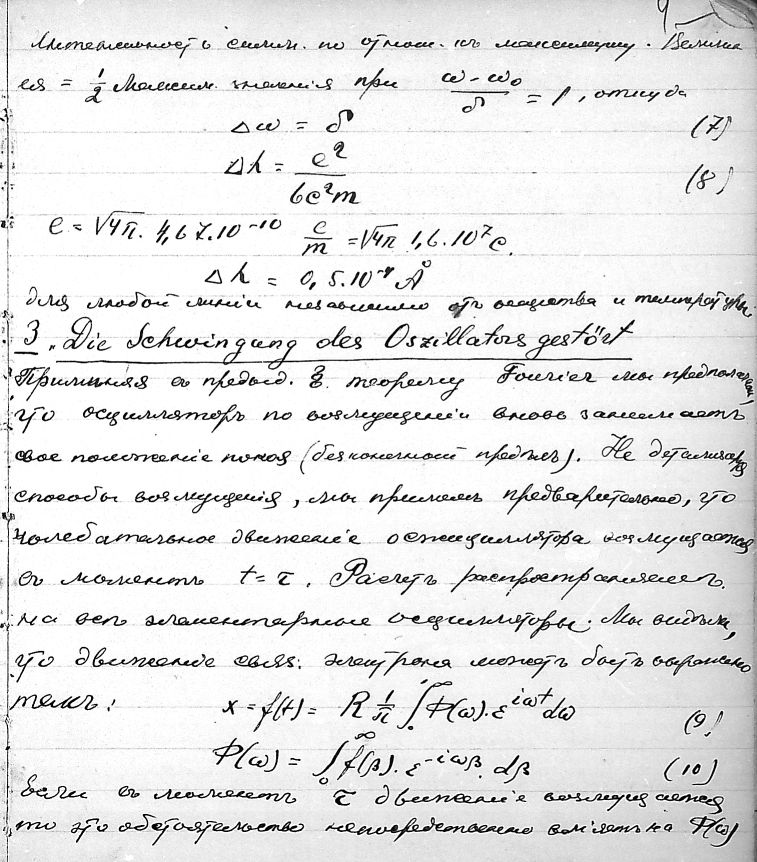 Интенсивность силы. по отнош. къ максимуму. Величина
ея = 1/2 Максим. значенія при (ω - ω₀)/δ = 1, откуда
Δω = δ (7)
Δλ = e²/6c²m (8)
e = √4π. 4,67.10⁻¹⁰ e/m = √4π 1,6.10⁷ c.
Δλ = 0,5.10⁻⁴ Å
для любой линіи независимо отъ вещества и температуры.
3. Die Schwingung des Oszillators gestört
Примѣняя въ предыд. § теорему Fourier мы предполагали,
что осцилляторъ по возмущеніи вновь занимаетъ
свое положеніе покоя (безконечный предѣлъ). Не детализируя
способы возмущенія, мы примемъ предварительно, что
колебательное движеніе осциллятора возмущается
въ моментъ t = τ. Расчетъ распространяемъ
на всѣ элементарные осцилляторы. Мы видѣли,
что движеніе связ. электрона можетъ быть выражено
такъ: x = f(t) = R 1/π ∫₀^∞ Φ(ω).ε^{iωt} dω (9)
Φ(ω) = ∫₀^∞ f(β).ε^{-iωβ}.dβ (10)
Если въ моментъ τ движеніе возмущается
то это обстоятельство непосредственно вліяетъ на Φ(ω)